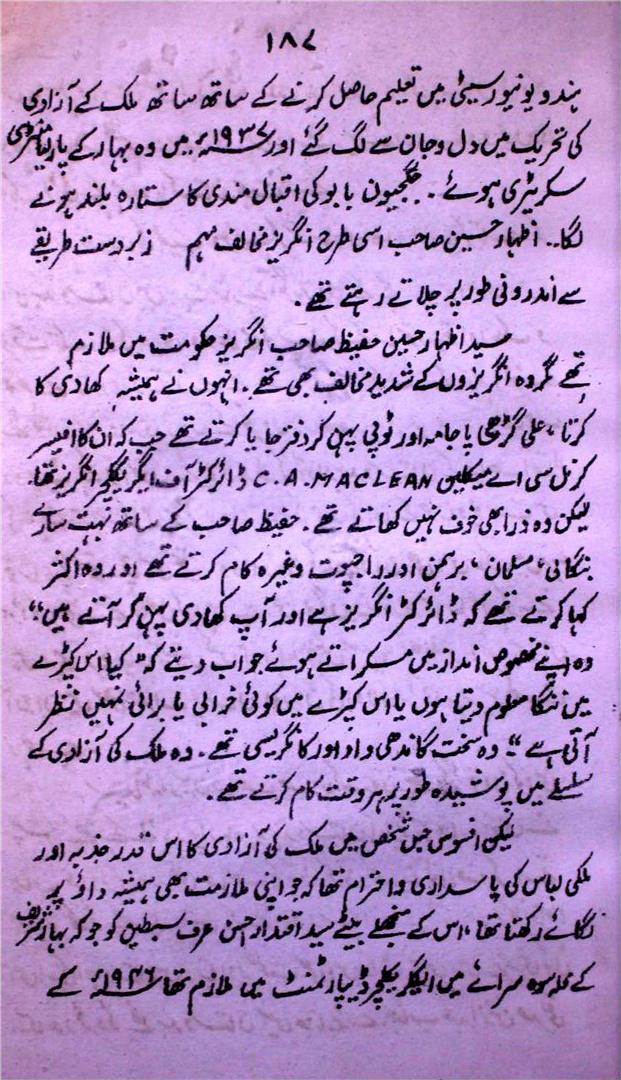 ۱۸۷
ہندو یونیورسیٹی میں تعلیم حاصل کرنے کے ساتھ ساتھ ملک کے آزادی
کی تحریک میں دل وجان سے لگ گئے اور ۱۹۳۷ء میں وہ بہار کے پارلیامنٹری
سکریٹری ہوئے ۔ جگجیون بابو کی اقبال مندی کا ستارہ بلند ہونے
لگا.. اظہار حسین صاحب اسی طرح انگریز مخالف مہم زبردست طریقے
سے اندرونی طور پر چلاتے رہتے تھے ۔
سید اظہار حسین حفیظ صاحب انگریز حکومت میں ملازم
تھے مگر وہ انگریزوں کے شدید مخالف بھی تھے ۔ انہوں نے ہمیشہ کھادی کا
کرتا ، علی گڑھی پاجامہ اور ٹوپی پہن کر دفتر جایا کرتے تھے جب کہ ان کا افیسر
کرنل سی اے میکلین C.A.MACLEAN ڈائرکٹر آف ایگریکلچر انگریز تھا.
لیکن وہ ذرا بھی خوف نہیں کھاتے تھے ۔ حفیظ صاحب کے ساتھ بہت سارے
بنگالی ، مسلمان ، برہمن اور راجپوت وغیرہ کام کرتے تھے اور وہ اکثر
کہا کرتے تھے کہ ڈائرکٹر انگریز ہے اور آپ کھادی پہن کر آتے ہیں"
وہ اپنے مخصوص انداز میں مسکراتے ہوئے جواب دیتے کہ " کیا اس کپڑے
میں ننگا معلوم دیتا ہوں یا اس کپڑے میں کوئی خرابی یا برائی نہیں نظر
آتی ہے " وہ سخت گاندھی واد اور کانگریسی تھے ۔ وہ ملک کی آزادی کے
سلسلے میں پوشیدہ طور پر ہر وقت کام کرتے تھے ۔
لیکن افسوس جس شخص میں ملک کی آزادی کا اس قدر جذبہ اور
ملکی لباس کی پاسداری و احترام تھا کہ جو اپنی ملازمت بھی ہمیشہ داؤ پر
لگائے رکھتا تھا ، اس کے منجھلے بیٹے سید اقتدار احسن عرف سبطین کو جو کہ بہار شریف
کے محلہ سوہ سرائے میں ایگریکلچر ڈیپارٹمنٹ میں ملازم تھا ۱۹۴۶ء کے